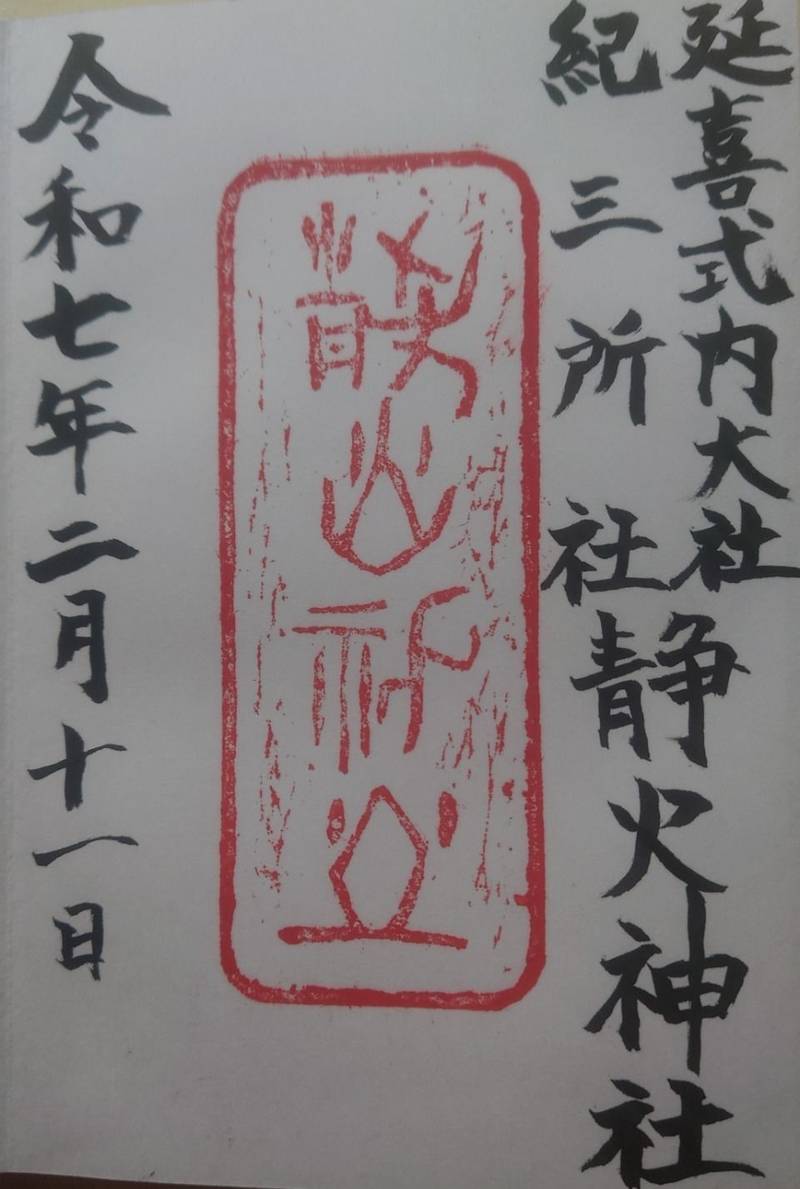 延喜式内大社
紀三所社
静火神社
令和七年二月十一日